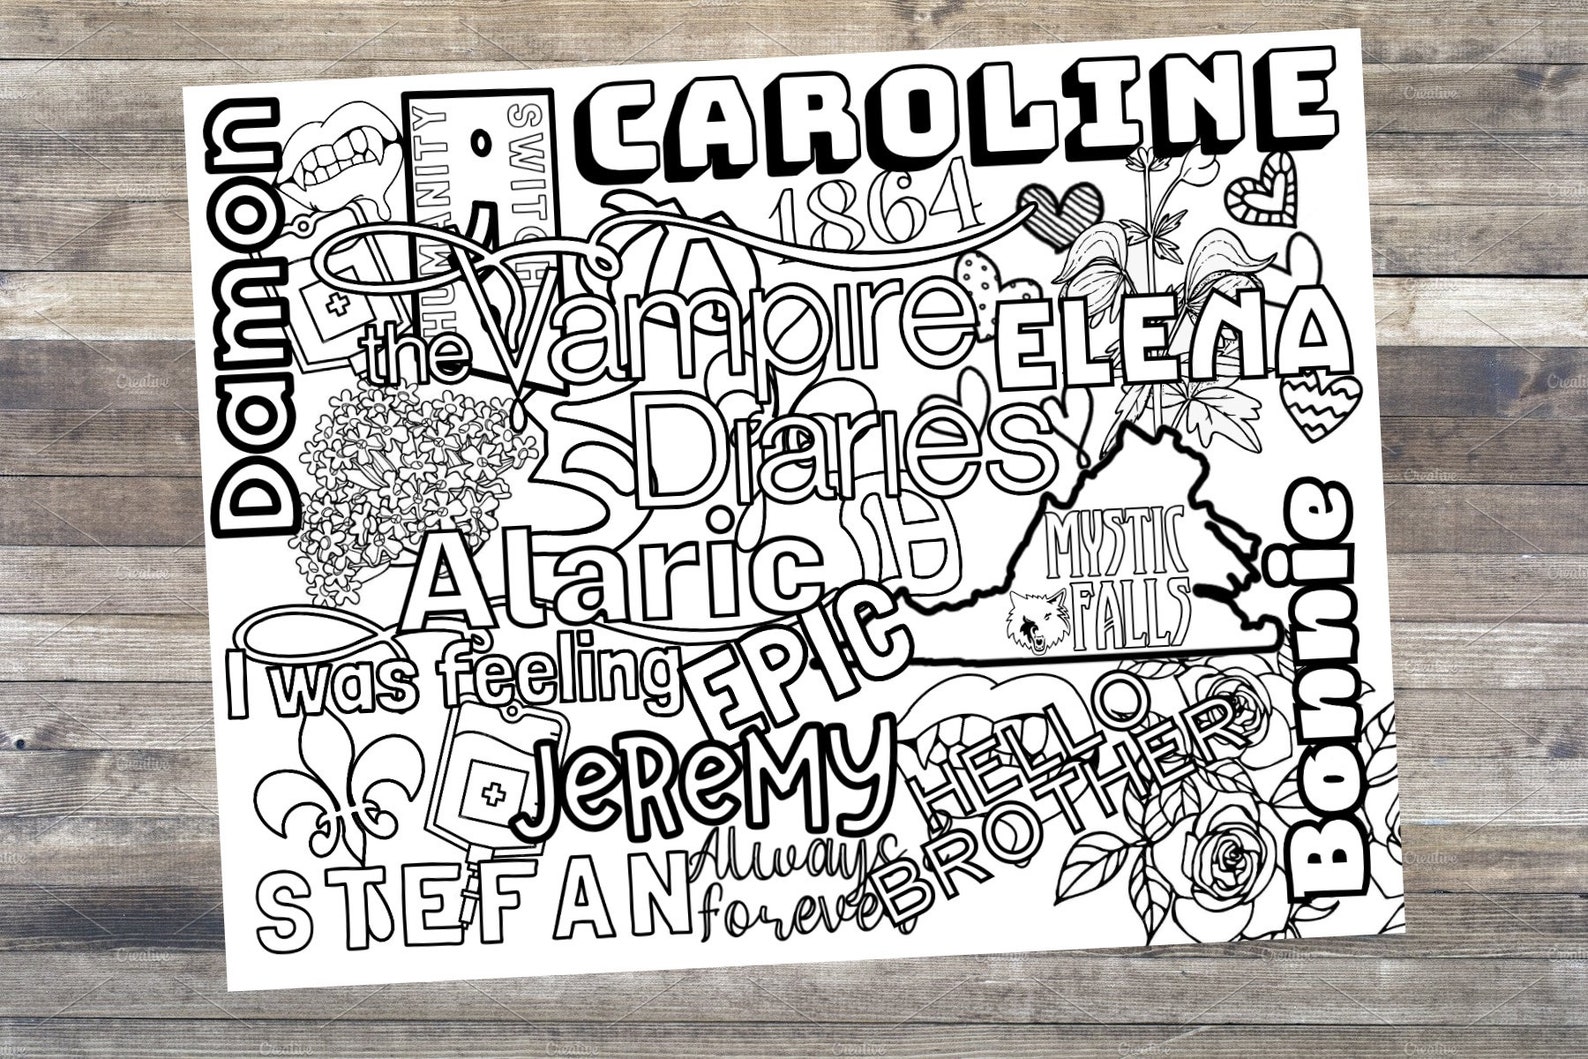 Damon
HUMANITY
SWITCH
CAROLINE
1864
the Vampire
Diaries
ELENA
Alaric
MYSTIC
FALLS
Bonnie
I was feeling
EPIC
JeReMY
HELLO
BROTHER
STEFAN
Always
forever
Creative